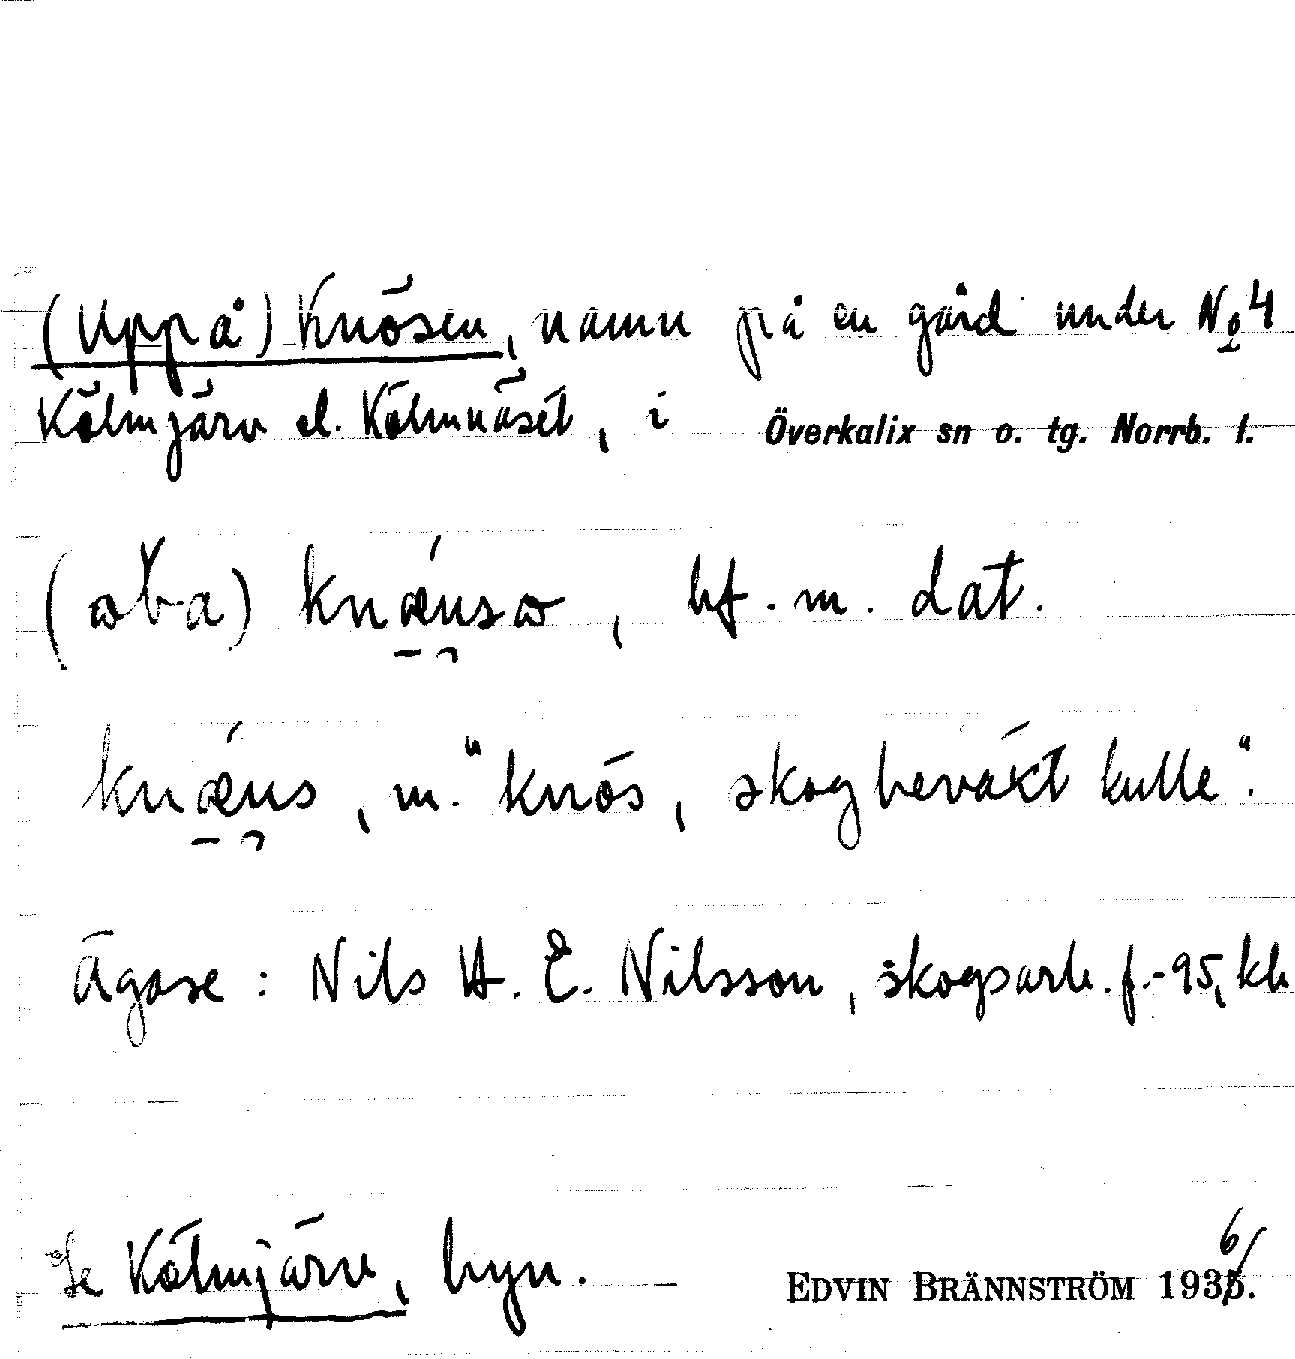 (Uppå) Knösen, namn på en gård under No 4
Kölmjärv el. Kölmnäset, i Överkalix sn o. tg. Norrb. l.
knǽnsɷ, bf. m. dat.
knǽns, m. "knös, skogbeväxt kulle".
Ägare: Nils H. E. Nilsson, skogsarb. f. -95, kb
Se Kölmjärv, byn. EDVIN BRÄNNSTRÖM 1936.